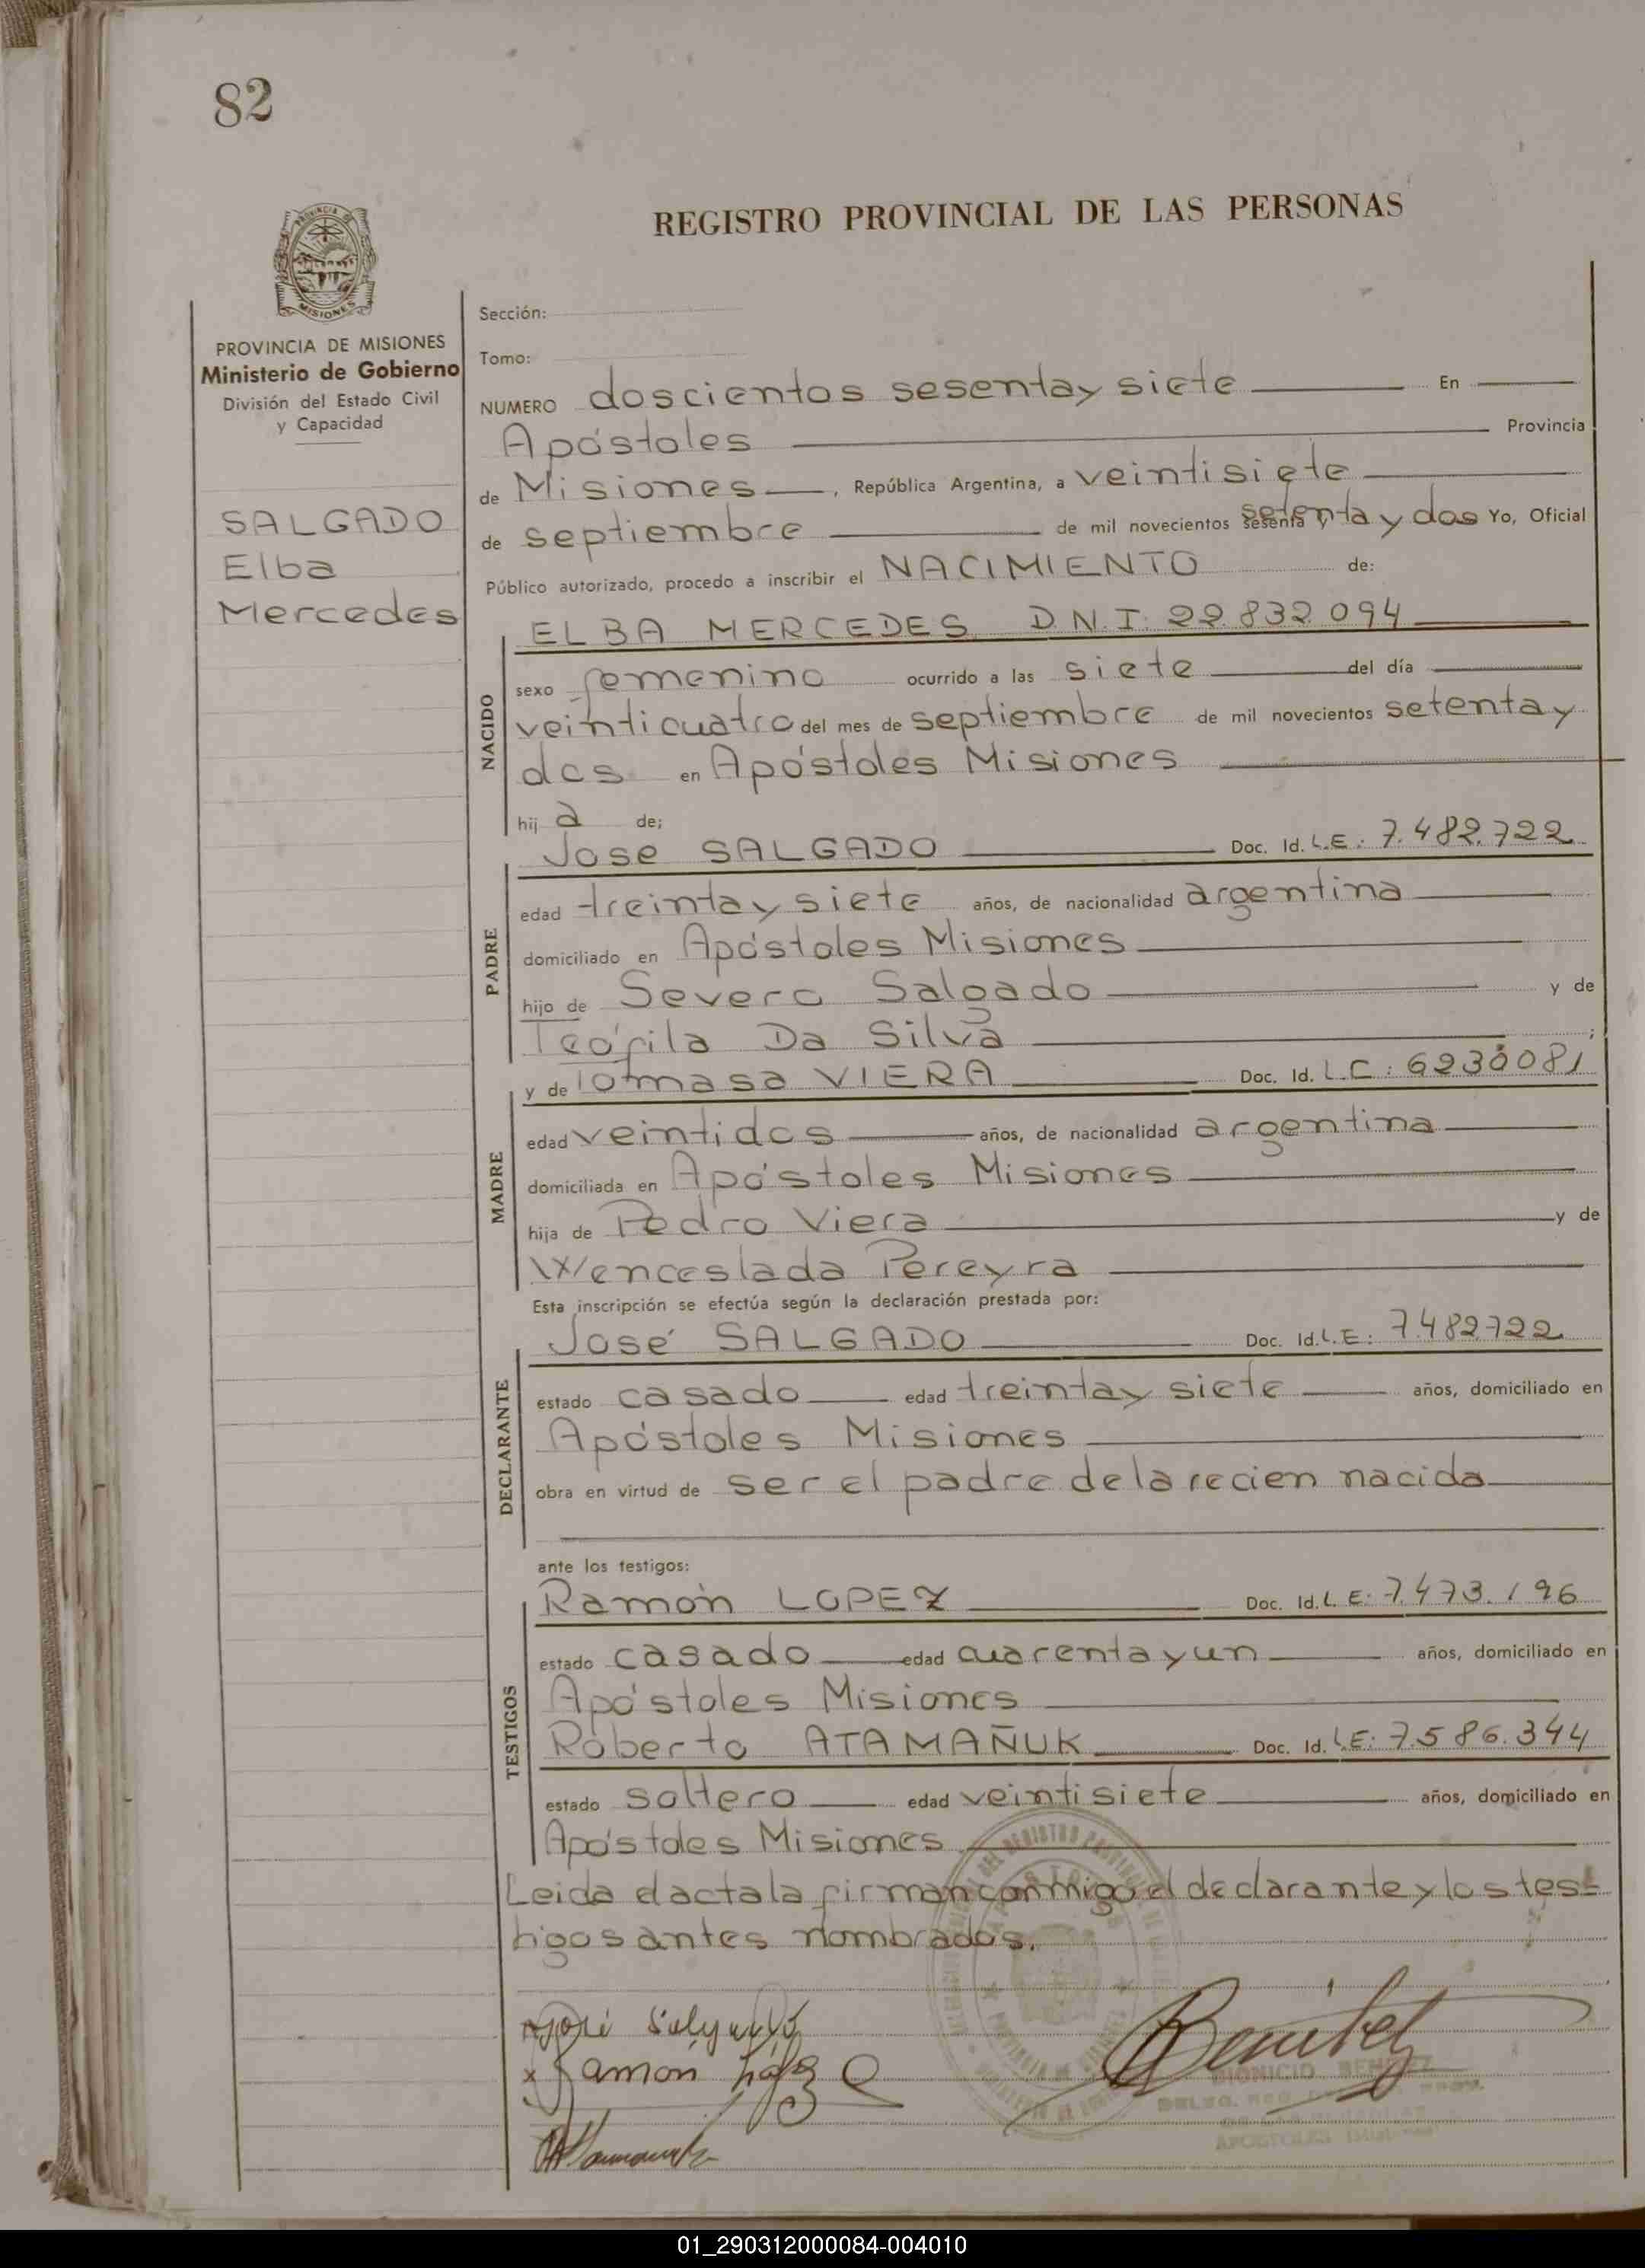 82
REGISTRO PROVINCIAL DE LAS PERSONAS
PROVINCIA DE MISIONES
Ministerio de Gobierno
División del Estado Civil
y Capacidad
SALGADO
Elba
Mercedes
Sección:
Tomo:
NUMERO doscientos sesenta y siete En
Apóstoles Provincia
de Misiones, República Argentina, a veintisiete
de septiembre de mil novecientos setenta y dos Yo, Oficial
Público autorizado, procedo a inscribir el NACIMIENTO de:
NACIDO
ELBA MERCEDES D.N.I. 22.832.094
sexo femenino ocurrido a las siete del día
veinticuatro del mes de septiembre de mil novecientos setenta y
dos en Apóstoles Misiones
hij a de;
PADRE
José SALGADO Doc. Id. L.E: 7.482.722
edad treinta y siete años, de nacionalidad argentina
domiciliado en Apóstoles Misiones
hijo de Severo Salgado y de
Teófila Da Silva ;
MADRE
y de Tomasa VIERA Doc. Id. L.C: 6230081
edad veintidos años, de nacionalidad argentina
domiciliada en Apóstoles Misiones
hija de Pedro Viera y de
Wenceslada Pereyra
Esta inscripción se efectúa según la declaración prestada por:
DECLARANTE
José SALGADO Doc. Id. L.E: 7.482722
estado casado edad treinta y siete años, domiciliado en
Apóstoles Misiones
obra en virtud de ser el padre de la recien nacida
ante los testigos:
TESTIGOS
Ramón LOPEZ Doc. Id. L.E: 7.473.196
estado casado edad cuarenta y un años, domiciliado en
Apóstoles Misiones
Roberto ATAMAÑUK Doc. Id. L.E: 7.586.344
estado soltero edad veintisiete años, domiciliado en
Apóstoles Misiones
Leida el acta la firman conmigo el declarante y los tes=
tigos antes nombrados.
José Salgado
x Ramón López
Benitez
DIONICIO BENITEZ
APOSTOLES
01_290312000084-004010